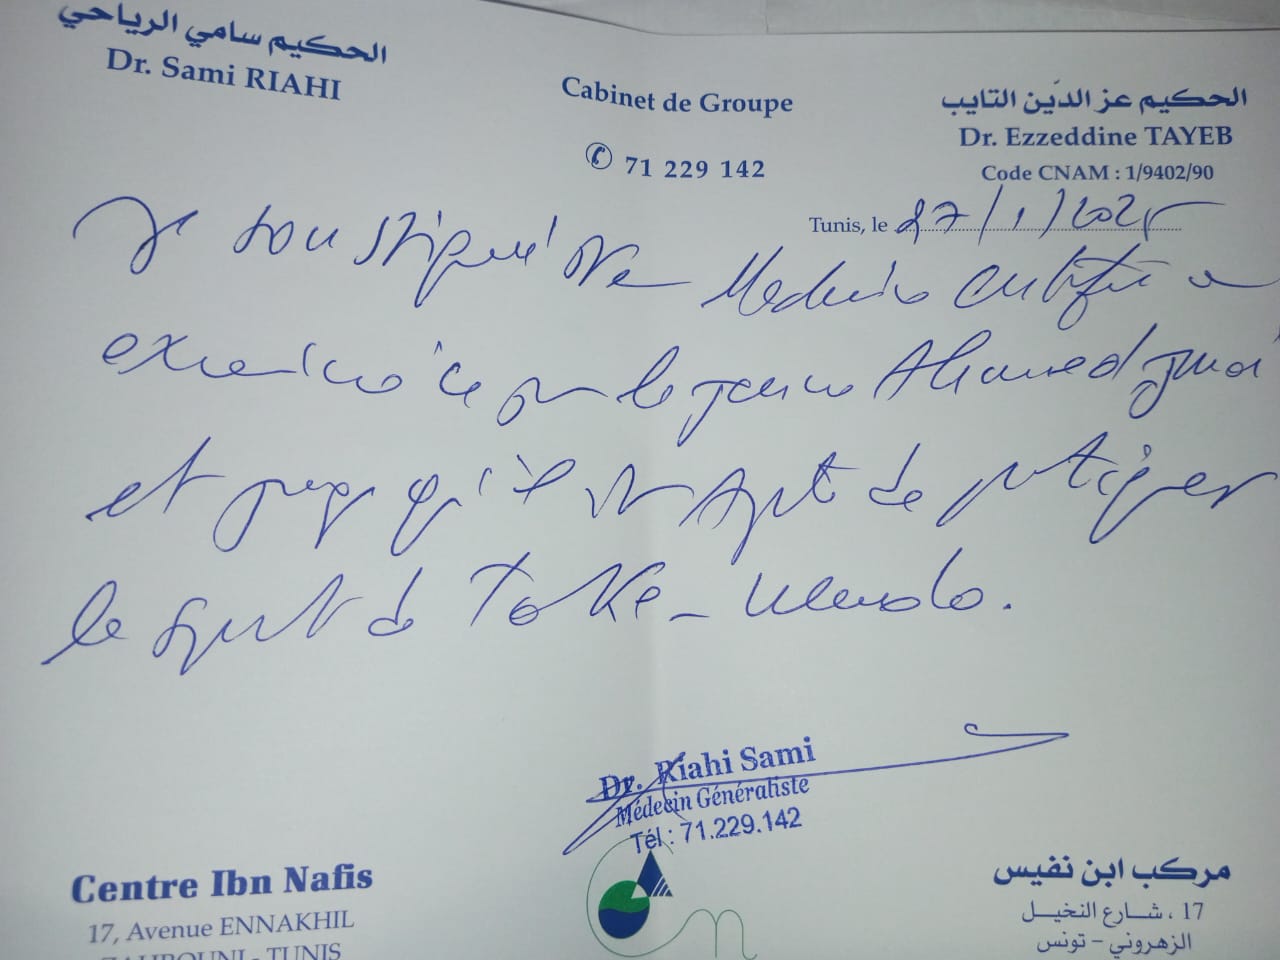 الحكيم سامي الرياحي
Dr. Sami RIAHI
Cabinet de Groupe
✆ 71 229 142
الحكيم عز الدّين التايب
Dr. Ezzeddine TAYEB
Code CNAM : 1/9402/90
Tunis, le 27/1/2025
Je soussigné Médecin certifie
examiné ce jour le jeune Ahmed
et juge qu'il est apte de pratiquer
le sport de Take-Wendo.
Dr. Riahi Sami
Médecin Généraliste
Tél : 71.229.142
Centre Ibn Nafis
17, Avenue ENNAKHIL
ZAHROUNI - TUNIS
مركب ابن نفيس
17 ، شـــارع النخيـــل
الزهروني - تونس